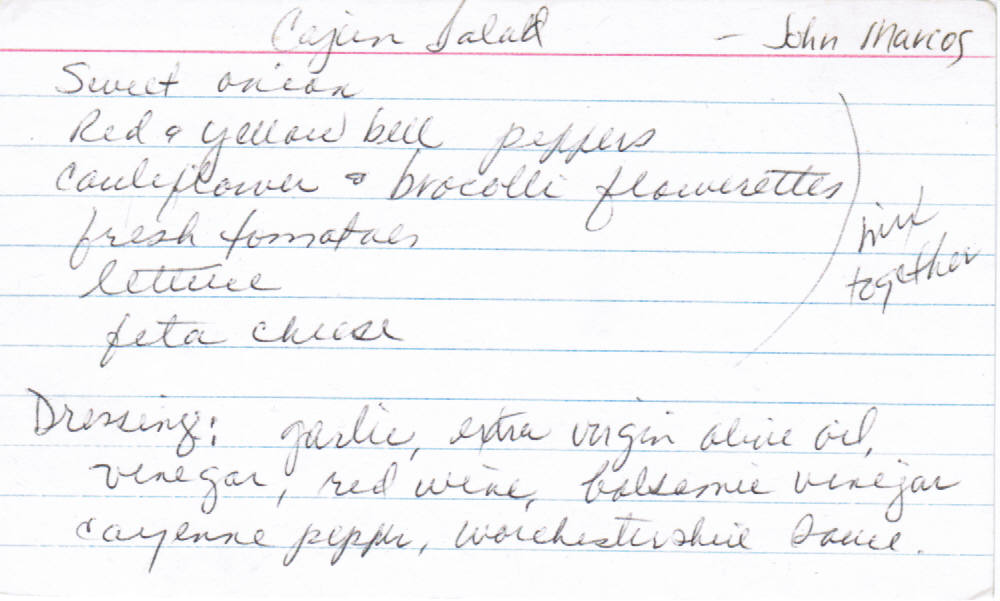 Cajun Salad - John Marcos
Sweet onion
Red & yellow bell peppers
Cauliflower & brocolli flowerettes
fresh tomatoes
lettuce
feta cheese
mix
together
Dressing: garlic, extra virgin olive oil,
vinegar, red wine, balsamic vinegar
cayenne pepper, worchestershire sauce.